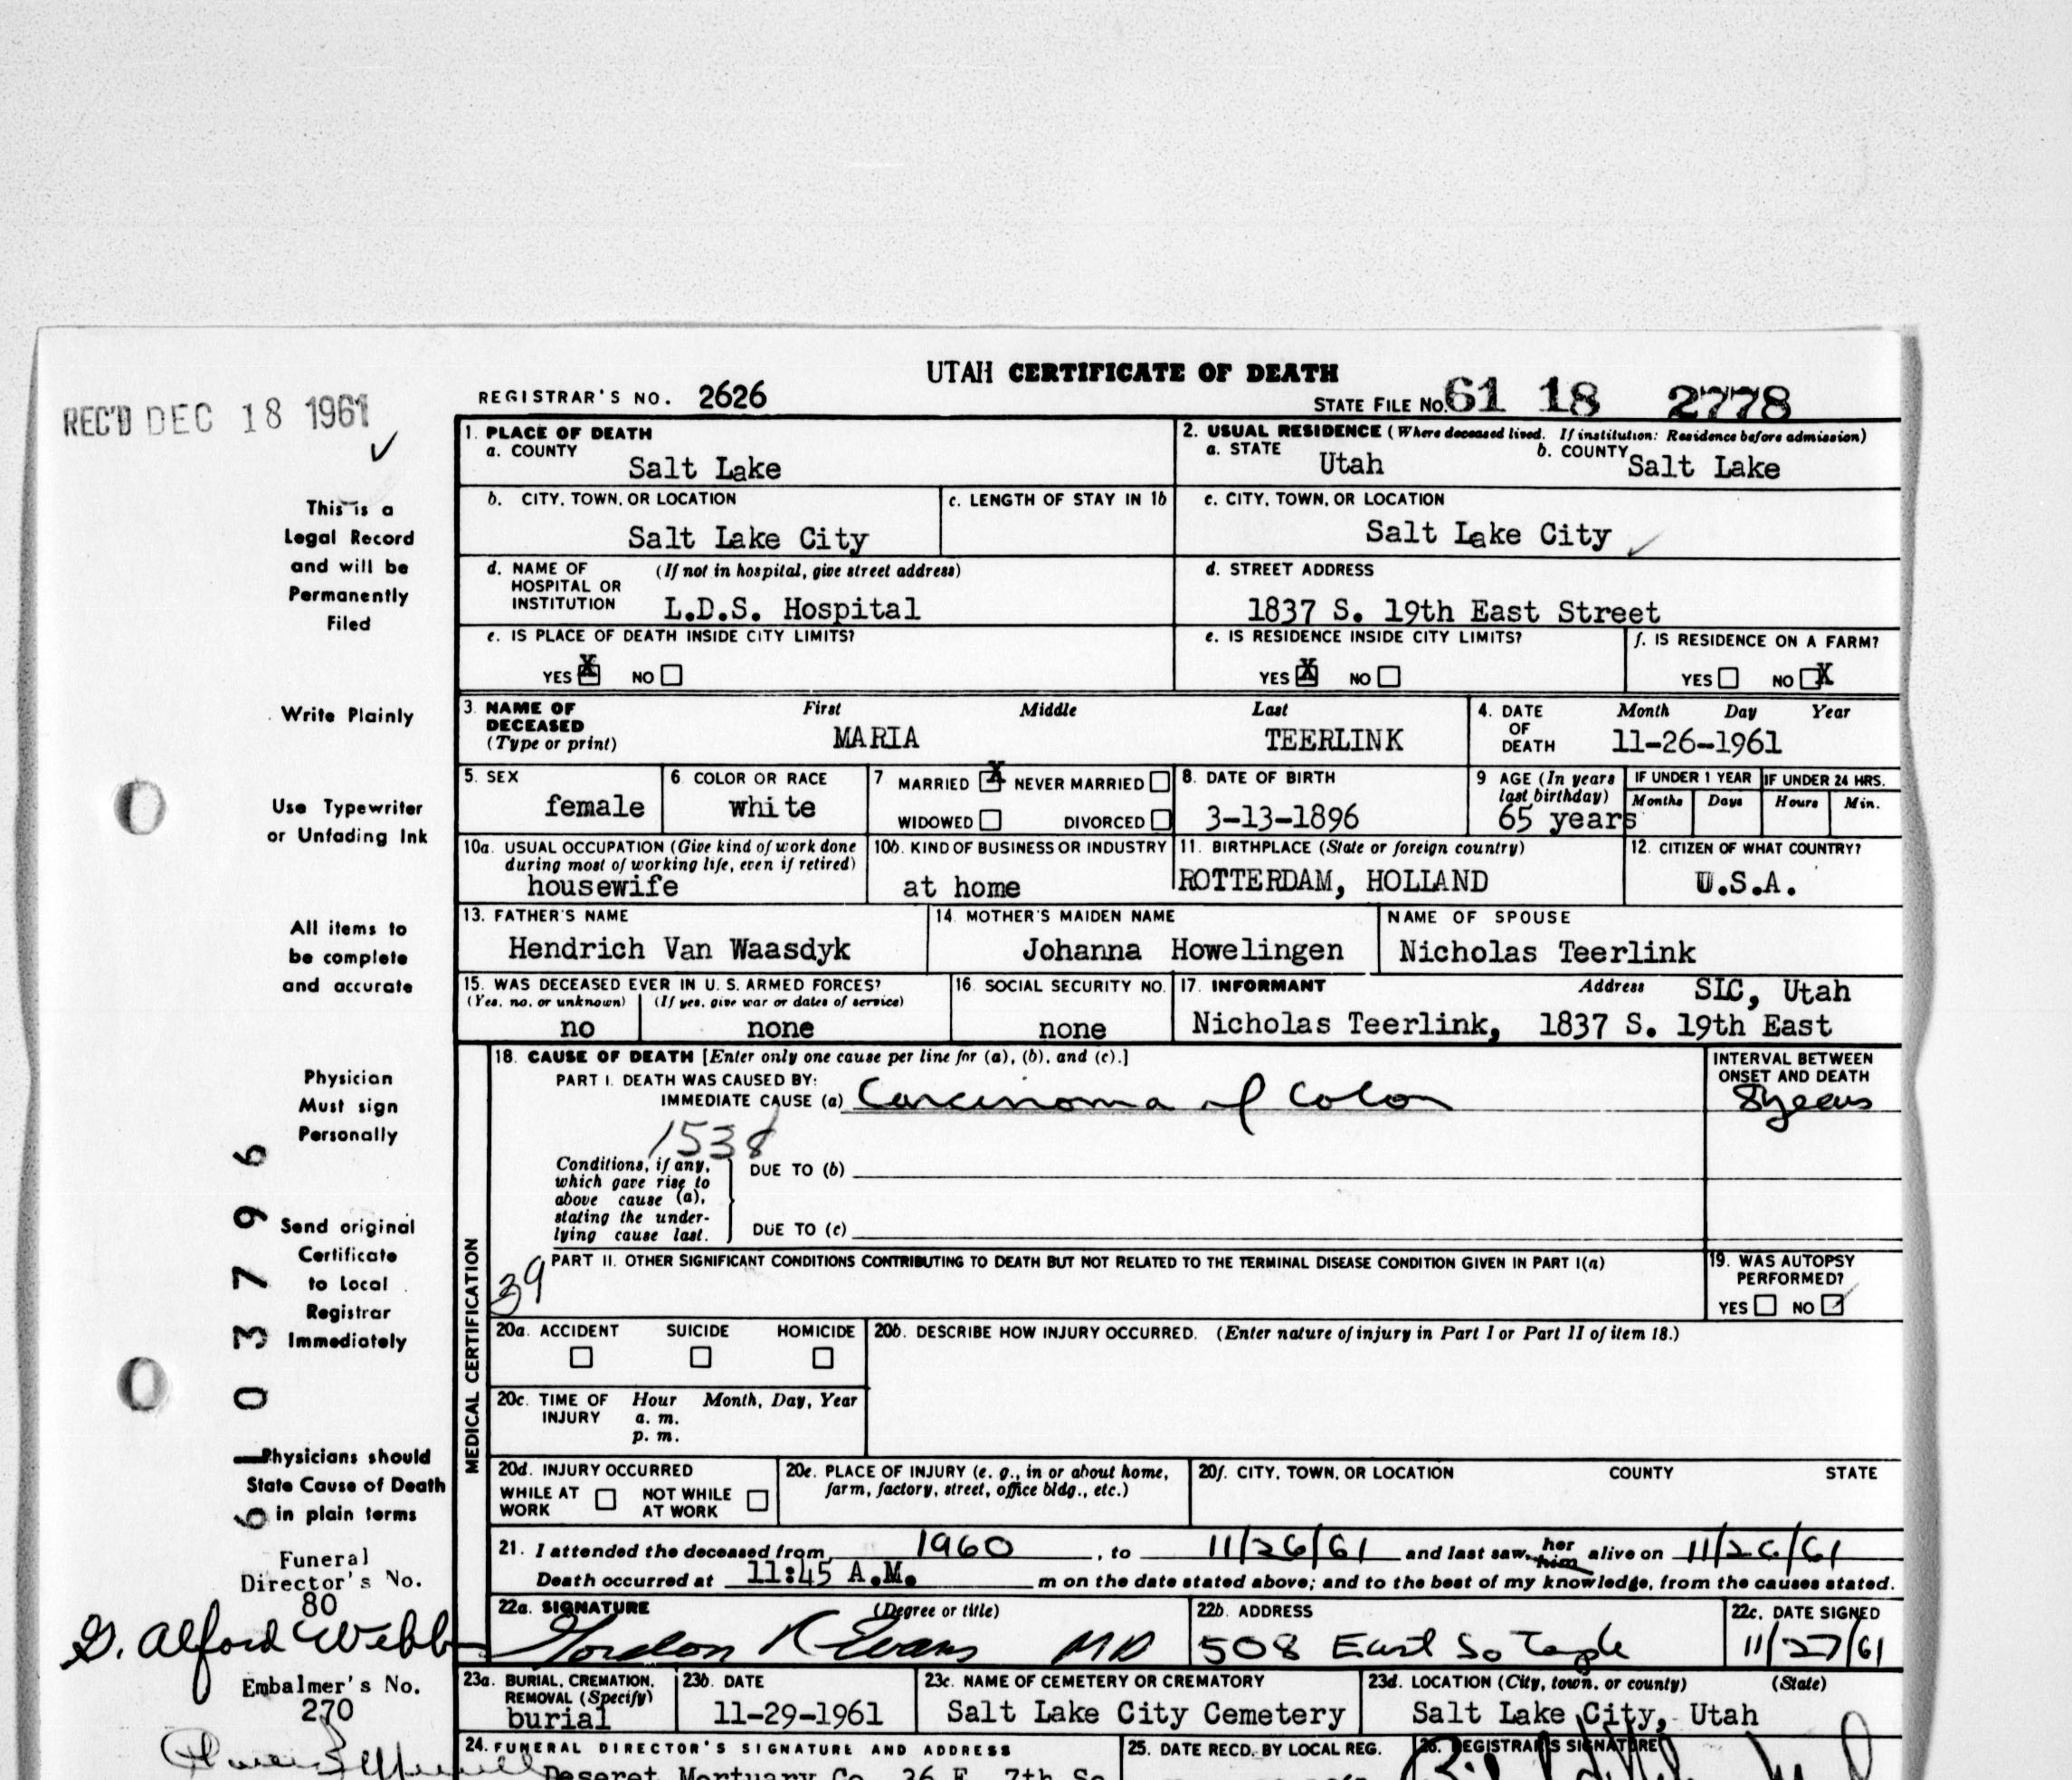 UTAH CERTIFICATE OF DEATH
REGISTRAR'S NO. 2626
STATE FILE NO. 61 18 2778
REC'D DEC 18 1961
This is a
Legal Record
and will be
Permanently
Filed
Write Plainly
Use Typewriter
or Unfading Ink
All items to
be complete
and accurate
Physician
Must sign
Personally
Send original
Certificate
to Local
Registrar
Immediately
Physicians should
State Cause of Death
in plain terms
6 1 0 3 7 9 6
Funeral
Director's No.
80
G. Alford Webb
Embalmer's No.
270
1. PLACE OF DEATH
a. COUNTY
Salt Lake
2. USUAL RESIDENCE (Where deceased lived. If institution: Residence before admission)
a. STATE Utah b. COUNTY Salt Lake
b. CITY, TOWN, OR LOCATION
Salt Lake City
c. LENGTH OF STAY IN 1b
c. CITY, TOWN, OR LOCATION
Salt Lake City
d. NAME OF HOSPITAL OR INSTITUTION (If not in hospital, give street address)
L.D.S. Hospital
d. STREET ADDRESS
1837 S. 19th East Street
e. IS PLACE OF DEATH INSIDE CITY LIMITS?
YES X NO
e. IS RESIDENCE INSIDE CITY LIMITS?
YES X NO
f. IS RESIDENCE ON A FARM?
YES NO X
3. NAME OF DECEASED (Type or print)
First Middle Last
MARIA TEERLINK
4. DATE OF DEATH Month Day Year
11-26-1961
5. SEX
female
6. COLOR OR RACE
white
7 MARRIED X NEVER MARRIED
WIDOWED DIVORCED
8. DATE OF BIRTH
3-13-1896
9 AGE (In years last birthday)
65 years
IF UNDER 1 YEAR IF UNDER 24 HRS.
Months Days Hours Min.
10a. USUAL OCCUPATION (Give kind of work done during most of working life, even if retired)
housewife
10b. KIND OF BUSINESS OR INDUSTRY
at home
11. BIRTHPLACE (State or foreign country)
ROTTERDAM, HOLLAND
12. CITIZEN OF WHAT COUNTRY?
U.S.A.
13. FATHER'S NAME
Hendrich Van Waasdyk
14. MOTHER'S MAIDEN NAME
Johanna Howelingen
NAME OF SPOUSE
Nicholas Teerlink
15. WAS DECEASED EVER IN U. S. ARMED FORCES?
(Yes, no, or unknown) (If yes, give war or dates of service)
no none
16. SOCIAL SECURITY NO.
none
17. INFORMANT Address SLC, Utah
Nicholas Teerlink, 1837 S. 19th East
MEDICAL CERTIFICATION
18. CAUSE OF DEATH [Enter only one cause per line for (a), (b), and (c).]
INTERVAL BETWEEN ONSET AND DEATH
PART I. DEATH WAS CAUSED BY:
IMMEDIATE CAUSE (a) Carcinoma of Colon 8 years
1538
Conditions, if any, which gave rise to above cause (a), stating the underlying cause last.
DUE TO (b)
DUE TO (c)
39
PART II. OTHER SIGNIFICANT CONDITIONS CONTRIBUTING TO DEATH BUT NOT RELATED TO THE TERMINAL DISEASE CONDITION GIVEN IN PART I(a)
19. WAS AUTOPSY PERFORMED?
YES NO
20a. ACCIDENT SUICIDE HOMICIDE
20b. DESCRIBE HOW INJURY OCCURRED. (Enter nature of injury in Part I or Part II of item 18.)
20c. TIME OF INJURY Hour Month, Day, Year
a. m.
p. m.
20d. INJURY OCCURRED
WHILE AT WORK NOT WHILE AT WORK
20e. PLACE OF INJURY (e. g., in or about home, farm, factory, street, office bldg., etc.)
20f. CITY, TOWN, OR LOCATION COUNTY STATE
21. I attended the deceased from 1960, to 11/26/61 and last saw her him alive on 11/26/61
Death occurred at 11:45 A.M. m on the date stated above; and to the best of my knowledge, from the causes stated.
22a. SIGNATURE (Degree or title)
Gordon R Evans MD
22b. ADDRESS
508 East So Temple
22c. DATE SIGNED
11/27/61
23a. BURIAL, CREMATION, REMOVAL (Specify)
burial
23b. DATE
11-29-1961
23c. NAME OF CEMETERY OR CREMATORY
Salt Lake City Cemetery
23d. LOCATION (City, town, or county) (State)
Salt Lake City, Utah
24. FUNERAL DIRECTOR'S SIGNATURE AND ADDRESS
Deseret Mortuary Co. 36 E. 7th So
25. DATE RECD. BY LOCAL REG.
26. REGISTRAR'S SIGNATURE